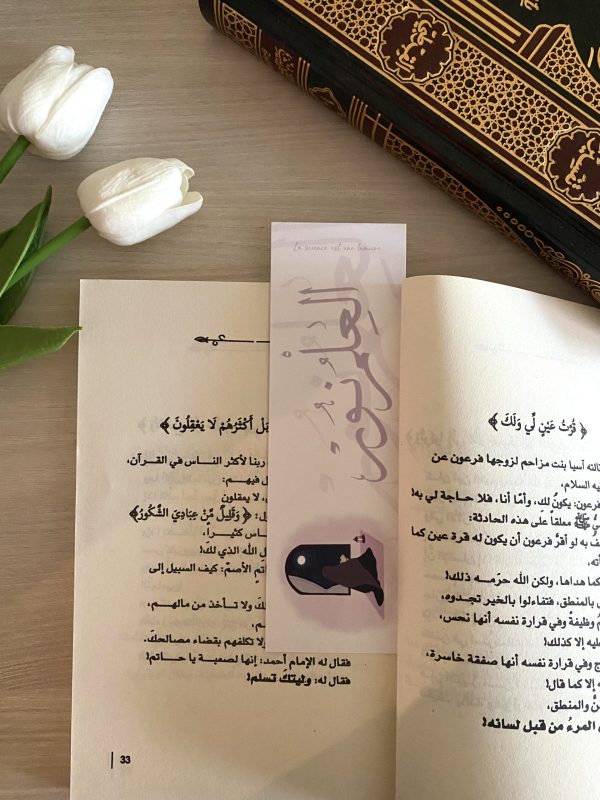 la science est une lumière
العِلمُ نُورٌ
﴿ قُرَّتُ عَيْنٍ لِّي وَلَكَ ﴾
آسيا بنت مزاحم لزوجها فرعون عن
السلام،
فرعون: يكونُ لكِ، وأمّا أنا، فلا حاجة لي به!
ﷺ معلقاً على هذه الحادثة:
به لو أقرَّ فرعون أن يكون له قرة عين كما
كما هداها، ولكن الله حرّمه ذلك!
بالمنطق، فتفاءلوا بالخير تجدوه،
وظيفةً وفي قرارة نفسه أنها نحس،
إلا كذلك!
وفي قرارة نفسه أنها صفقة خاسرة،
إلا كما قال!
والمنطق،
المرءُ من قبل لسانه!
أَكْثَرُهُمْ لَا يَعْقِلُونَ ﴾
ربنا لأكثر الناس في القرآن،
فيهم:
لا يعقلون
﴿ وَقَلِيلٌ مِّنْ عِبَادِيَ الشَّكُورُ ﴾
كثيراً،
الله الذي لك!
الأصمّ: كيف السبيل إلى
ولا تأخذ من مالهم،
ولا تكلفهم بقضاء مصالحك.
فقال له الإمام أحمد: إنها لصعبة يا حاتم!
فقال له: وليتكَ تسلم!
33